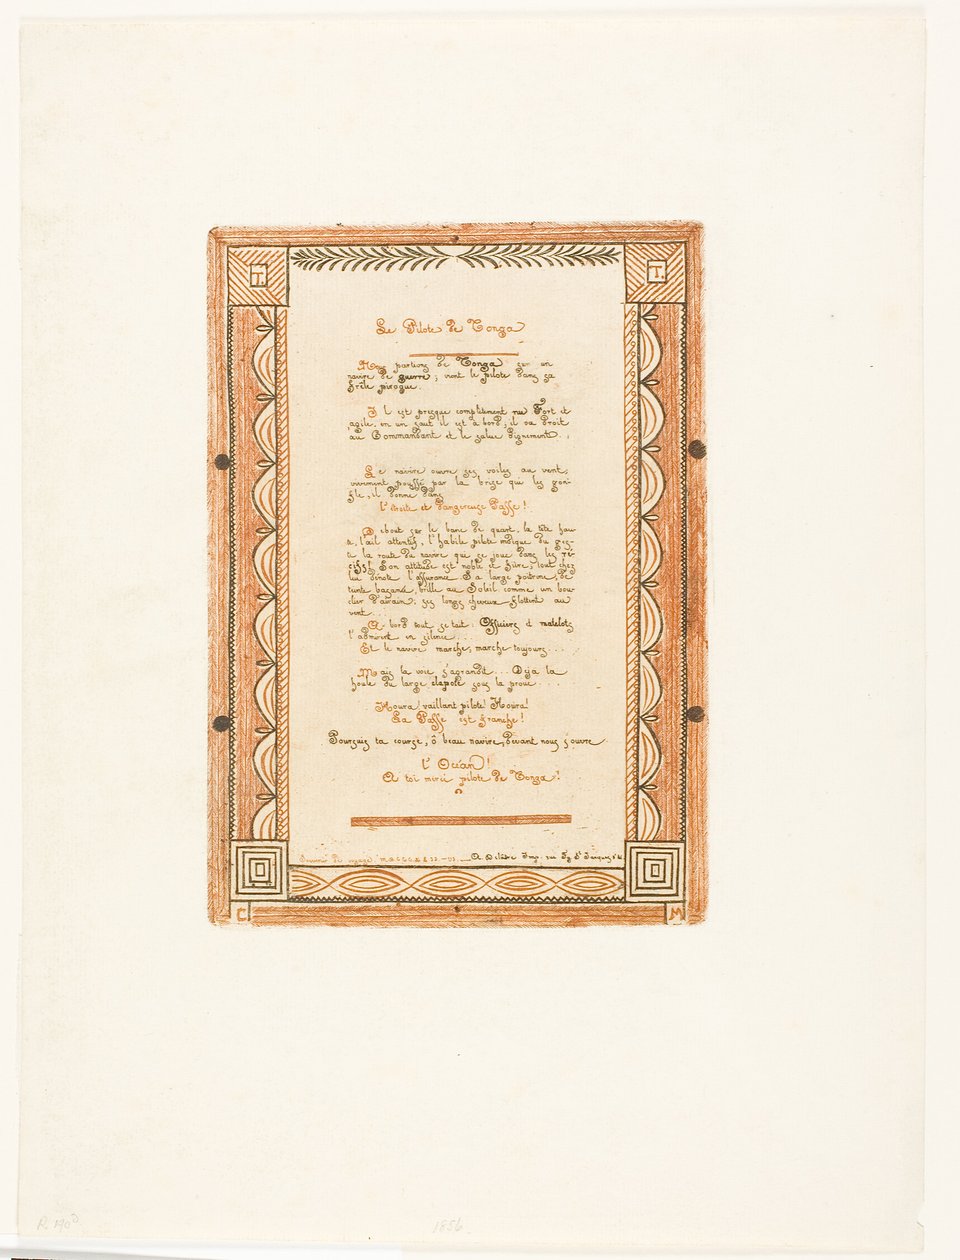 T.
T.
Le Pilote de Tonga
Nous partions de Tonga sur un
navire de guerre ; vient le pilote dans sa
frêle pirogue.
Il est presque complètement nu Fort et
agile, en un saut il est à bord ; il va droit
au Commandant et le salue dignement. .
Le navire ouvre ses voiles au vent,
vivement poussé par la brise qui les gon-
fle, il donne dans
l'étroite et dangereuse Passe !
Debout sur le banc de quart, la tête hau
te, l'œil attentif, l'habile pilote indique du ges-
te la route du navire qui se joue dans les ré-
cifs! Son attitude est noble et fière; tout chez
lui dénote l'assurance. Sa large poitrine, de
teinte basanée, brille au Soleil comme un bou-
clier d'airain; ses longs cheveux flottent au
vent...
A bord tout se tait : Officiers et matelots
l'admirent en silence . . .
Et le navire marche, marche toujours . . .
Mais la voie s'agrandit... Déja la
houle du large clapote sous la proue . . . .
Houra! vaillant pilote! Houra!
La Passe est franche !
Poursuis ta course, ô beau navire, devant nous s'ouvre
l'Océan !
A toi merci pilote de Tonga !
A. Delâtre Imp. rue Fg St Jacques
C
M
R. 190
1856